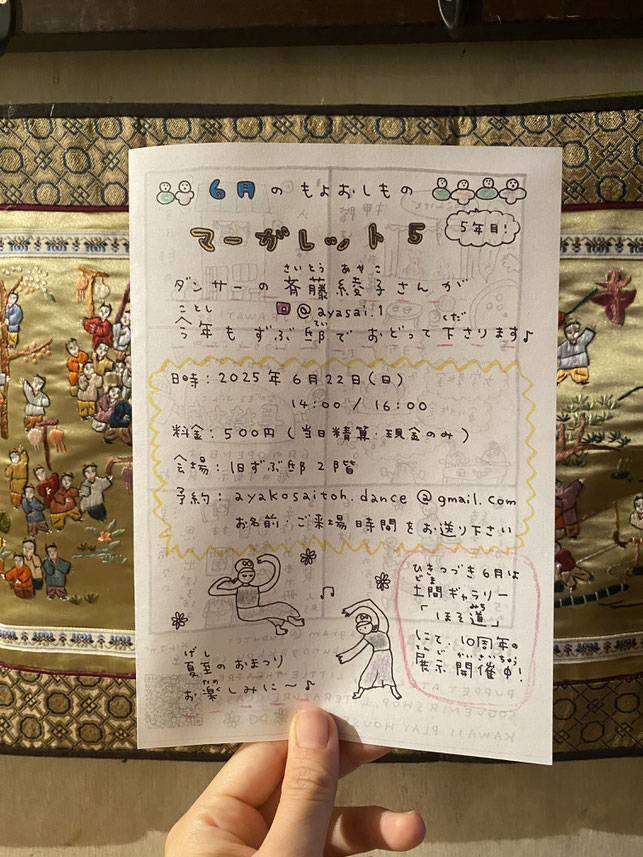 6月のもよおしもの
マーガレット5
5年目!
さいとう あやこ
ダンサーの斉藤綾子さんが
@ayasai.1
ことし てい くだ
今年もずぶ邸でおどって下さります♪
日時:2025年6月22日(日)
14:00 / 16:00
料金:500円(当日精算・現金のみ)
会場:旧ずぶ邸2階
予約:ayakosaitoh.dance@gmail.com
お名前・ご来場時間をお送り下さい
ひきつづき6月は
どま
土間ギャラリー
みち
「ほそ道」
にて、10周年の
てんじ かいさいちゅう
展示開催中!
げし
夏至のおまつり
たの
お楽しみに〜♪